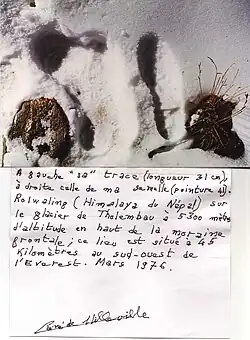 A gauche "sa" trace (longueur 31 cm),
à droite celle de ma semelle (pointure 41).
Rolwaling (Himalaya du Népal) sur
le glacier de Tholembau à 5300 mètres
d'altitude en haut de la moraine
frontale ; ce lieu est situé à 45
Kilomètres au sud-ouest de
l'Everest. Mars 1976.
René de Milleville